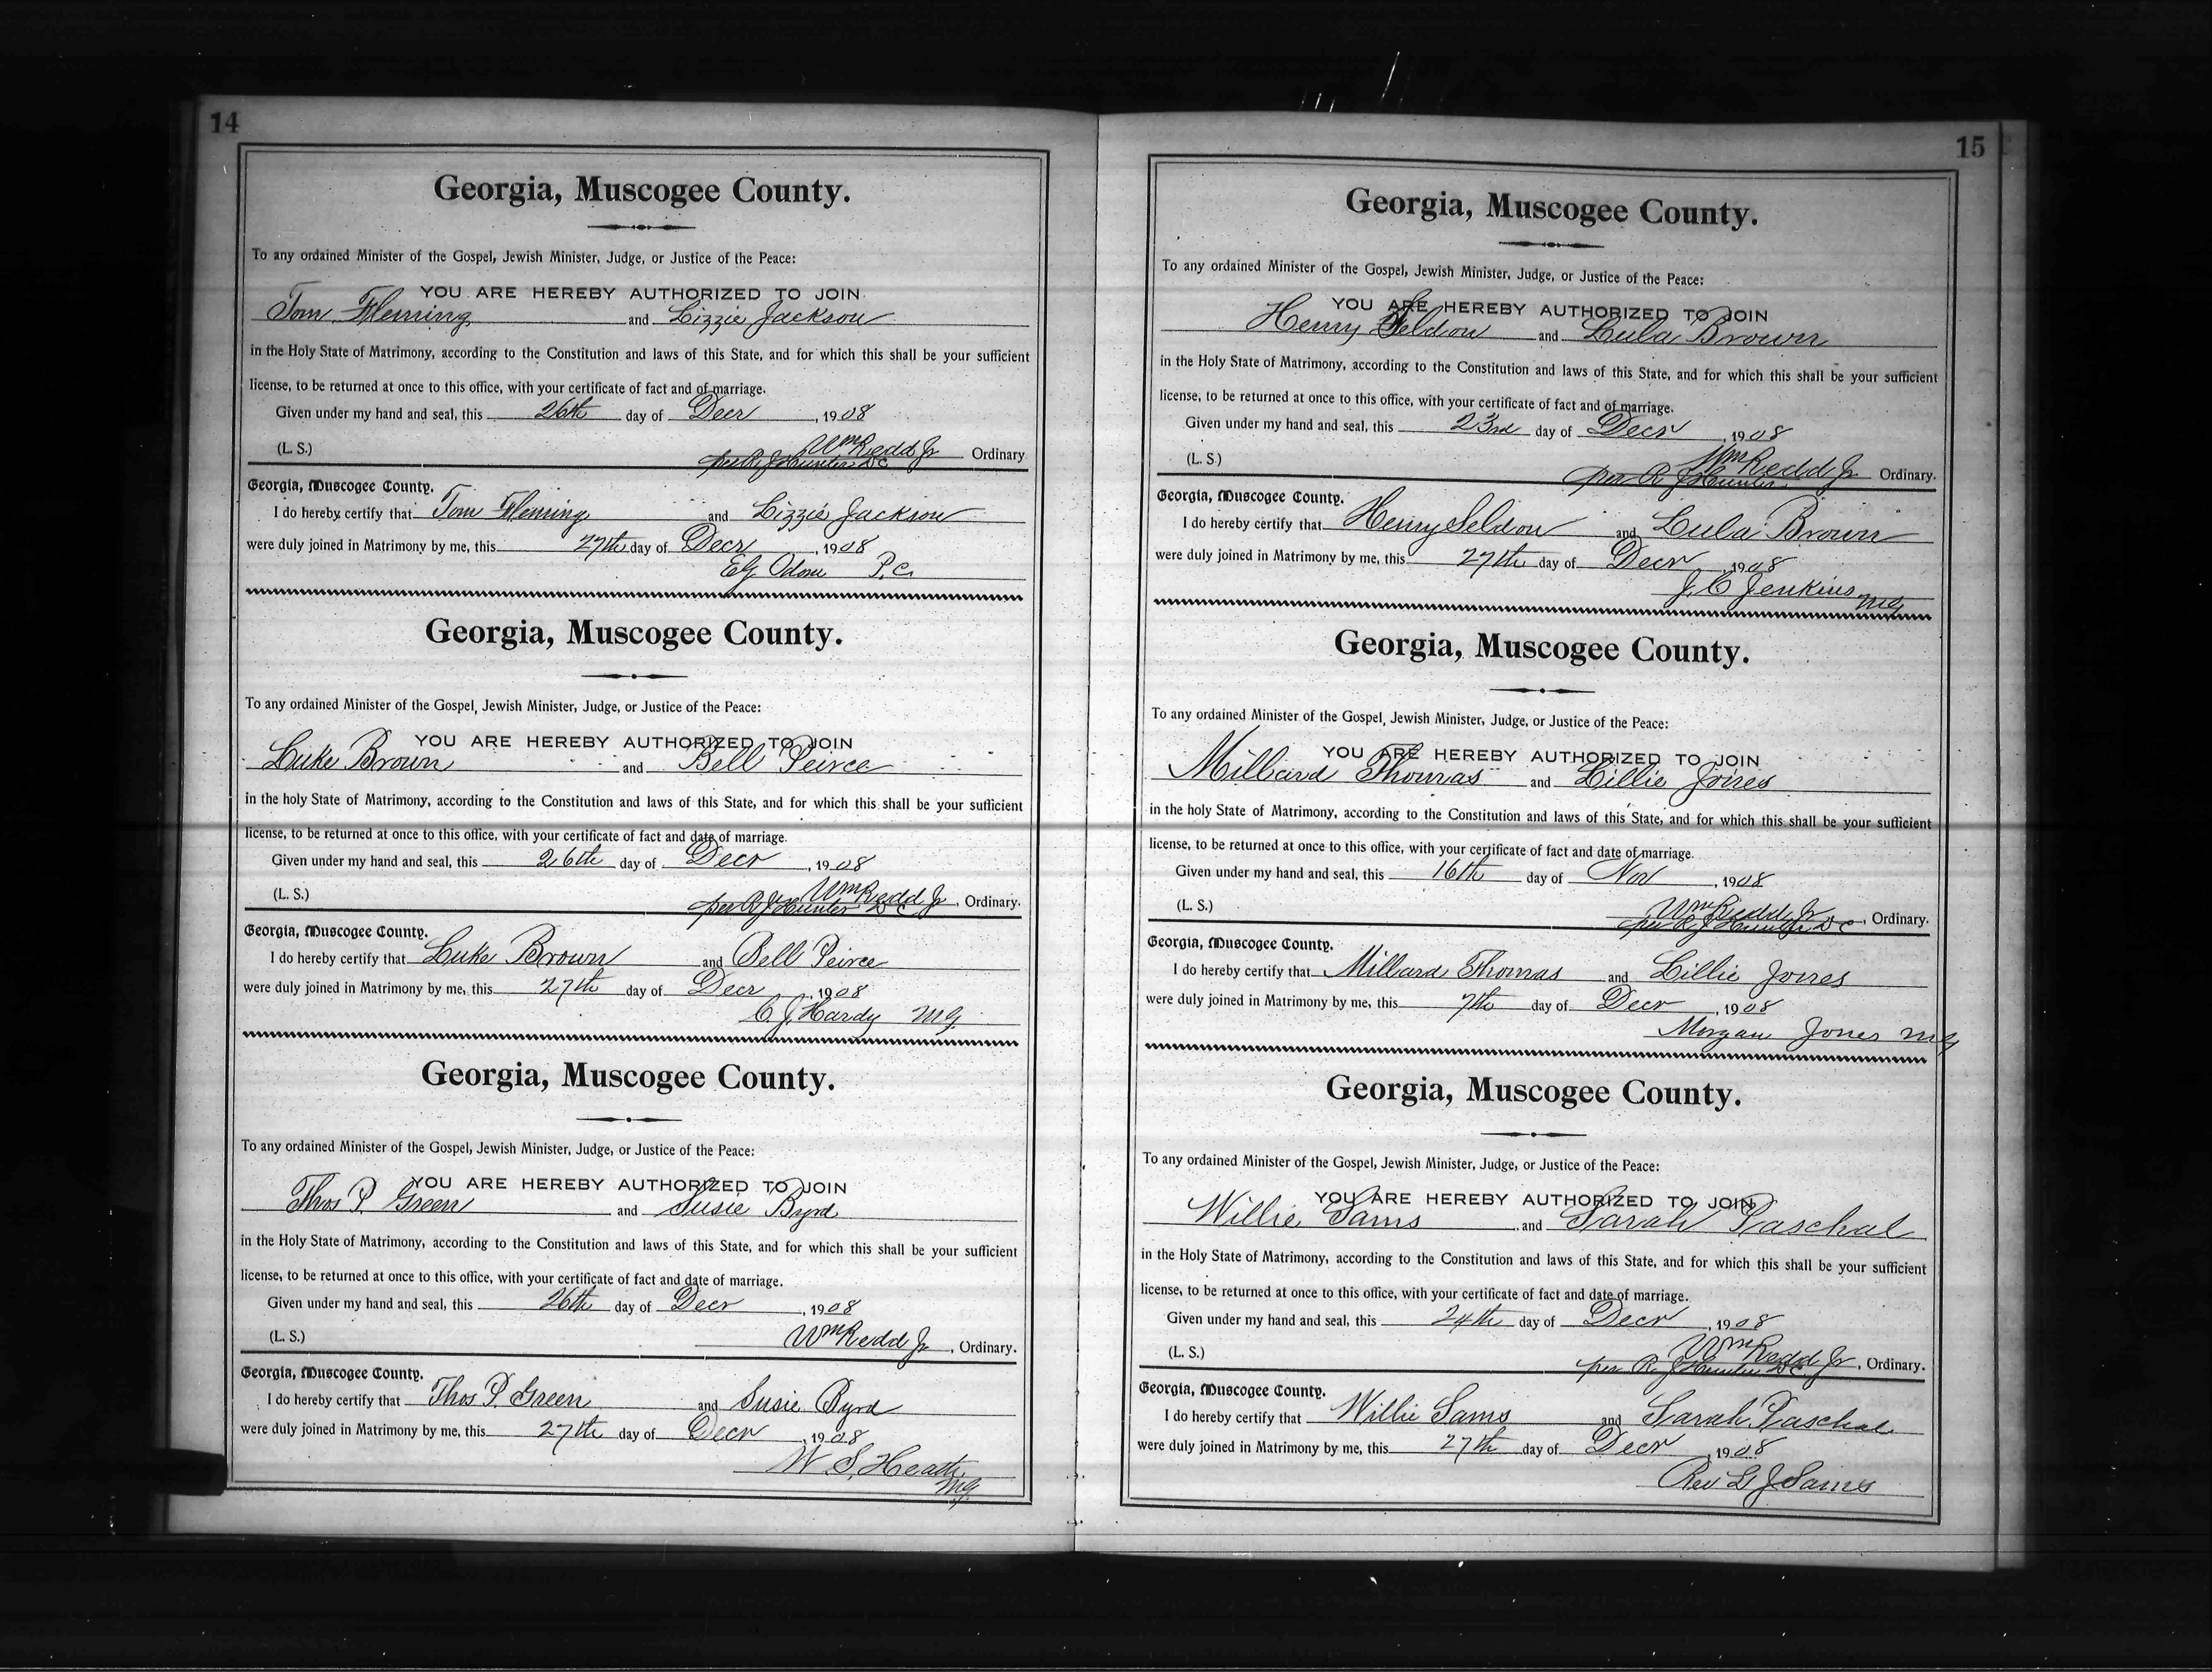 14
Georgia, Muscogee County.
To any ordained Minister of the Gospel, Jewish Minister, Judge, or Justice of the Peace:
YOU ARE HEREBY AUTHORIZED TO JOIN
Tom Fleming and Lizzie Jackson
in the Holy State of Matrimony, according to the Constitution and laws of this State, and for which this shall be your sufficient
license, to be returned at once to this office, with your certificate of fact and of marriage.
Given under my hand and seal, this 26th day of Decr , 1908
(L. S.) Wm Redd Jr Ordinary
per R J Hunter DC
Georgia, Muscogee County.
I do hereby certify that Tom Fleming and Lizzie Jackson
were duly joined in Matrimony by me, this 27th day of Decr , 1908
EG Odom P.C.
Georgia, Muscogee County.
To any ordained Minister of the Gospel, Jewish Minister, Judge, or Justice of the Peace:
YOU ARE HEREBY AUTHORIZED TO JOIN
Luke Brown and Bell Peirce
in the holy State of Matrimony, according to the Constitution and laws of this State, and for which this shall be your sufficient
license, to be returned at once to this office, with your certificate of fact and date of marriage.
Given under my hand and seal, this 26th day of Decr , 1908
(L. S.) Wm Redd Jr , Ordinary.
per R J Hunter DC
Georgia, Muscogee County.
I do hereby certify that Luke Brown and Bell Peirce
were duly joined in Matrimony by me, this 27th day of Decr , 1908
C. J. Hardy MG
Georgia, Muscogee County.
To any ordained Minister of the Gospel, Jewish Minister, Judge, or Justice of the Peace:
YOU ARE HEREBY AUTHORIZED TO JOIN
Thos P. Green and Susie Byrd
in the Holy State of Matrimony, according to the Constitution and laws of this State, and for which this shall be your sufficient
license, to be returned at once to this office, with your certificate of fact and date of marriage.
Given under my hand and seal, this 26th day of Decr , 1908
(L. S.) Wm Redd Jr , Ordinary.
Georgia, Muscogee County.
I do hereby certify that Thos P. Green and Susie Byrd
were duly joined in Matrimony by me, this 27th day of Decr , 1908
W. S. Heath
MG
15
Georgia, Muscogee County.
To any ordained Minister of the Gospel, Jewish Minister, Judge, or Justice of the Peace:
YOU ARE HEREBY AUTHORIZED TO JOIN
Henry Seldon and Lula Brown
in the Holy State of Matrimony, according to the Constitution and laws of this State, and for which this shall be your sufficient
license, to be returned at once to this office, with your certificate of fact and of marriage.
Given under my hand and seal, this 23rd day of Decr , 1908
(L. S.) Wm Redd Jr Ordinary.
per R J Hunter
Georgia, Muscogee County.
I do hereby certify that Henry Seldon and Lula Brown
were duly joined in Matrimony by me, this 27th day of Decr , 1908
J. C Jenkins MG
Georgia, Muscogee County.
To any ordained Minister of the Gospel, Jewish Minister, Judge, or Justice of the Peace:
YOU ARE HEREBY AUTHORIZED TO JOIN
Millard Thomas and Lillie Jones
in the holy State of Matrimony, according to the Constitution and laws of this State, and for which this shall be your sufficient
license, to be returned at once to this office, with your certificate of fact and date of marriage.
Given under my hand and seal, this 16th day of Nov , 1908
(L. S.) Wm Redd Jr , Ordinary.
per R J Hunter DC
Georgia, Muscogee County.
I do hereby certify that Millard Thomas and Lillie Jones
were duly joined in Matrimony by me, this 7th day of Decr , 1908
Morgan Jones MG
Georgia, Muscogee County.
To any ordained Minister of the Gospel, Jewish Minister, Judge, or Justice of the Peace:
YOU ARE HEREBY AUTHORIZED TO JOIN
Willie Sams and Sarah Paschal
in the Holy State of Matrimony, according to the Constitution and laws of this State, and for which this shall be your sufficient
license, to be returned at once to this office, with your certificate of fact and date of marriage.
Given under my hand and seal, this 24th day of Decr , 1908
(L. S.) Wm Redd Jr , Ordinary.
per R J Hunter DC
Georgia, Muscogee County.
I do hereby certify that Willie Sams and Sarah Paschal
were duly joined in Matrimony by me, this 27th day of Decr , 1908
Rev L J Sams